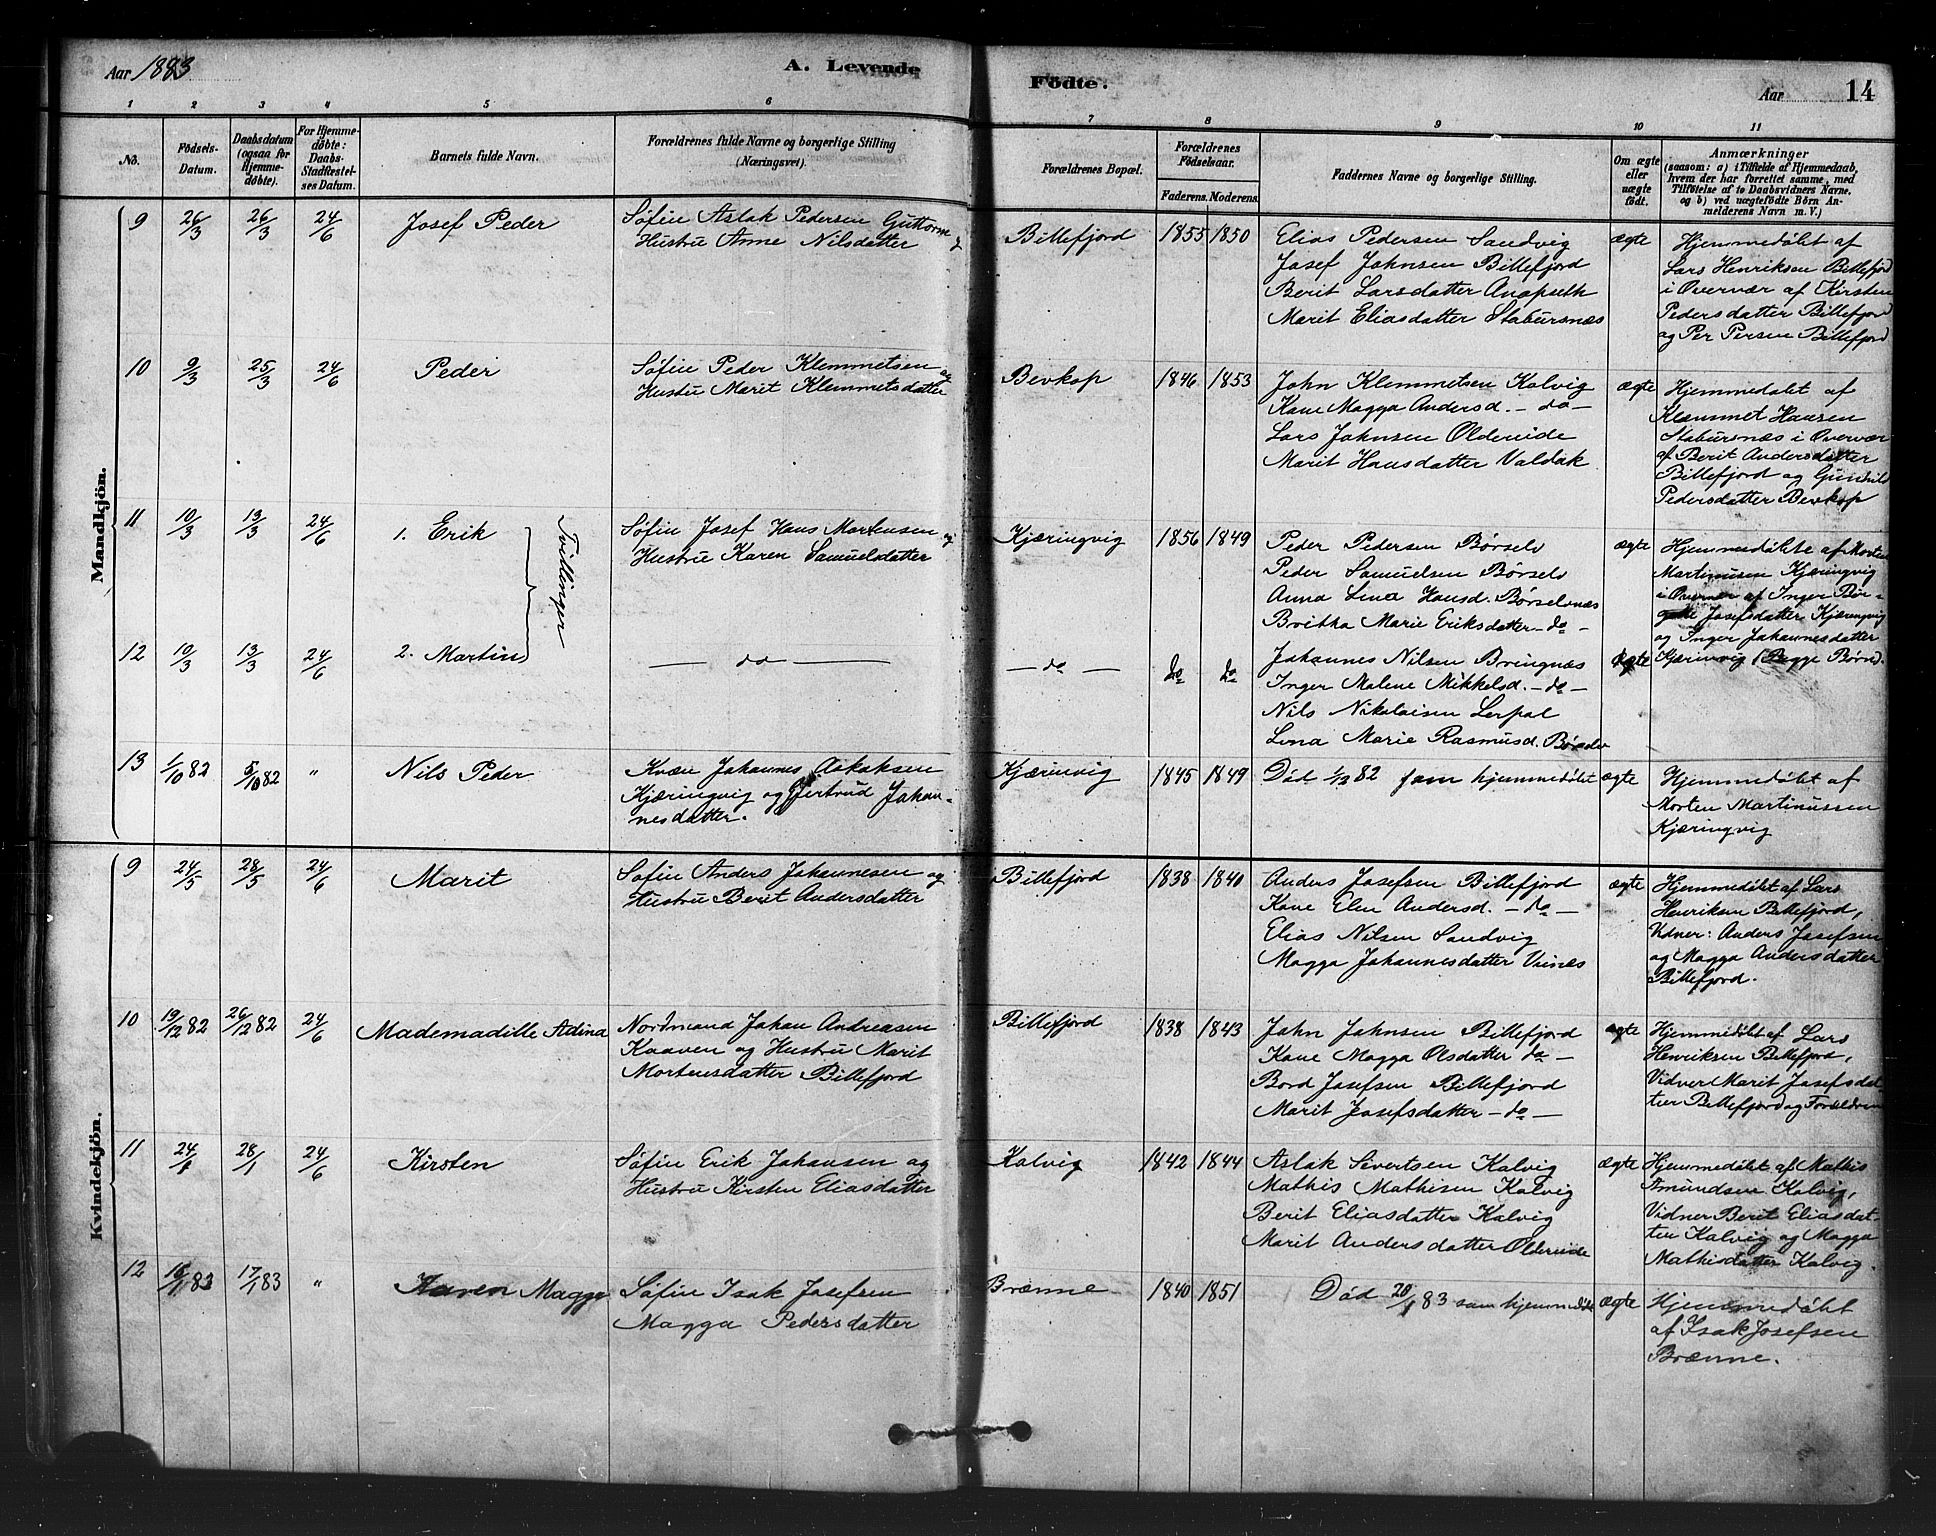 Aar 1883
A. Levende
Födte.
Aar
14
1 2 3 4 5 6 7 8 9 10 11
No.
Födsels-
Datum.
Daabsdatum
(ogsaa for
Hjemme-
döbte).
For Hjemme-
døbte:
Daabs-
Stadfæstel-
ses Datum.
Barnets fulde Navn.
Forældrenes fulde Navne og borgerlige Stilling
(Næringsvei).
Forældrenes Bopæl.
Forældrenes
Födselsaar.
Faderens. Moderens.
Faddernes Navne og borgerlige Stilling.
Om ægte
eller
uægte
födt.
Anmærkninger
(saasom: a) i Tilfælde af Hjemmedaab,
hvem der har forrettet samme, med
Tilföielse af to Daabsvidners Navne,
og b) ved uægtefödte Börn An-
melderens Navn m. V.)
Mandkjön.
9 26/3 26/3 24/6 Josef Peder
Søfin Aslak Pedersen Guttorm
Hustru Anne Nilsdatter
Billefjord 1855 1850
Elias Pedersen Sandvig
Josef Johnsen Billefjord
Berit Larsdatter
Marit Eliasdatter Stabursnæs
ægte
Hjemmedøbt af
Lars Henriksen Billefjord
i Overvær af Kirsten
Pedersdatter Billefjord
og Per Persen Billefjord
10 9/3 25/3 24/6 Peder
Søfin Peder Klemmetsen og
Hustru Marit Klemmetsdatter
Bevkop 1846 1853
John Klemmetsen Kolvig
Kone Magga Andersd. - do -
Lars Johnsen Oldereide
Marit Hansdatter Valdak
ægte
Hjemmedøbt af
Klemmet Hansen
Stabursnæs i Overvær
af Berit Andersdatter
Billefjord og Gunhild
Pedersdatter Bevkop
11 10/3 13/3 24/6 1. Erik
Tvillinger
Søfin Josef Hans Mortensen og
Hustru Karen Samuelsdatter
Kjæringvig 1856 1849
Peder Pedersen Børselv
Peder Samuelsen Børselv
Anna Lina Hansd. Børselvnæs
Britha Marie Eriksdatter - do -
ægte
Hjemmedøbte af Morten
Martinusen Kjæringvig
i Overvær af Inger Bir-
gitte Josefsdatter Kjæringvig
og Inger Johannesdatter
Kjæringvig (Begge Børn).
12 10/3 13/3 24/6 2. Martin
- do -
- do - do do
Johannes Nilsen Bringnæs
Inger Malene Mikkelsd. - do -
Nils Nikolaisen Lerpol
Lina Marie Rasmusd. Børselv
ægte
13 1/10 82 5/10 82 " Nils Peder
Kvæn Johannes
Kjæringvig og Gjertrud Johan-
nesdatter.
Kjæringvig 1845 1849
Død 82 som hjemmedøbt
ægte
Hjemmedøbt af
Morten Martinussen
Kjæringvig
Kvindekjön.
9 24/5 28/5 24/6 Marit
Søfin Anders Johannesen og
Hustru Berit Andersdatter
Billefjord 1838 1840
Anders Josefsen Billefjord
Kone Elen Andersd. - do -
Elias Nilsen Sandvig
Magga Johannesdatter Vinæs
ægte
Hjemmedøbt af Lars
Henriksen Billefjord,
Vidner: Anders Josefsen
og Magga Andersdatter
Billefjord.
10 19/12 82 26/12 82 24/6 Mademadille Adina
Nordmand Johan Andreasen
Kaaven og Hustru Marit
Mortensdatter Billefjord
Billefjord 1838 1843
John Johnsen Billefjord
Kone Magga Olsdatter do -
Bord Josefsen Billefjord
Marit Josefsdatter - do -
ægte
Hjemmedøbt af Lars
Henriksen Billefjord,
Vidner Marit Josefsdat
ter Billefjord og Forældrene
11 24/1 28/1 24/6 Kirsten
Søfin Erik Johansen og
Hustru Kirsten Eliasdatter
Kolvig 1842 1844
Aslak Sivertsen Kolvig
Mathis Mathisen Kolvig
Berit Eliasdatter Kolvig
Marit Andersdatter Oldereide
ægte
Hjemmedøbt af Mathis
Amundsen Kolvig,
Vidner Berit Eliasdat-
ter Kolvig og Magga
Mathisdatter Kolvig.
12 16/1 83 17/1 83 " Karen Magga
Søfin Isak Josefsen
Magga Pedersdatter
Brænne 1840 1851
Død 20/1 83 som hjemmedøbt
ægte
Hjemmedøbt
af Isak Josefsen
Brænne.